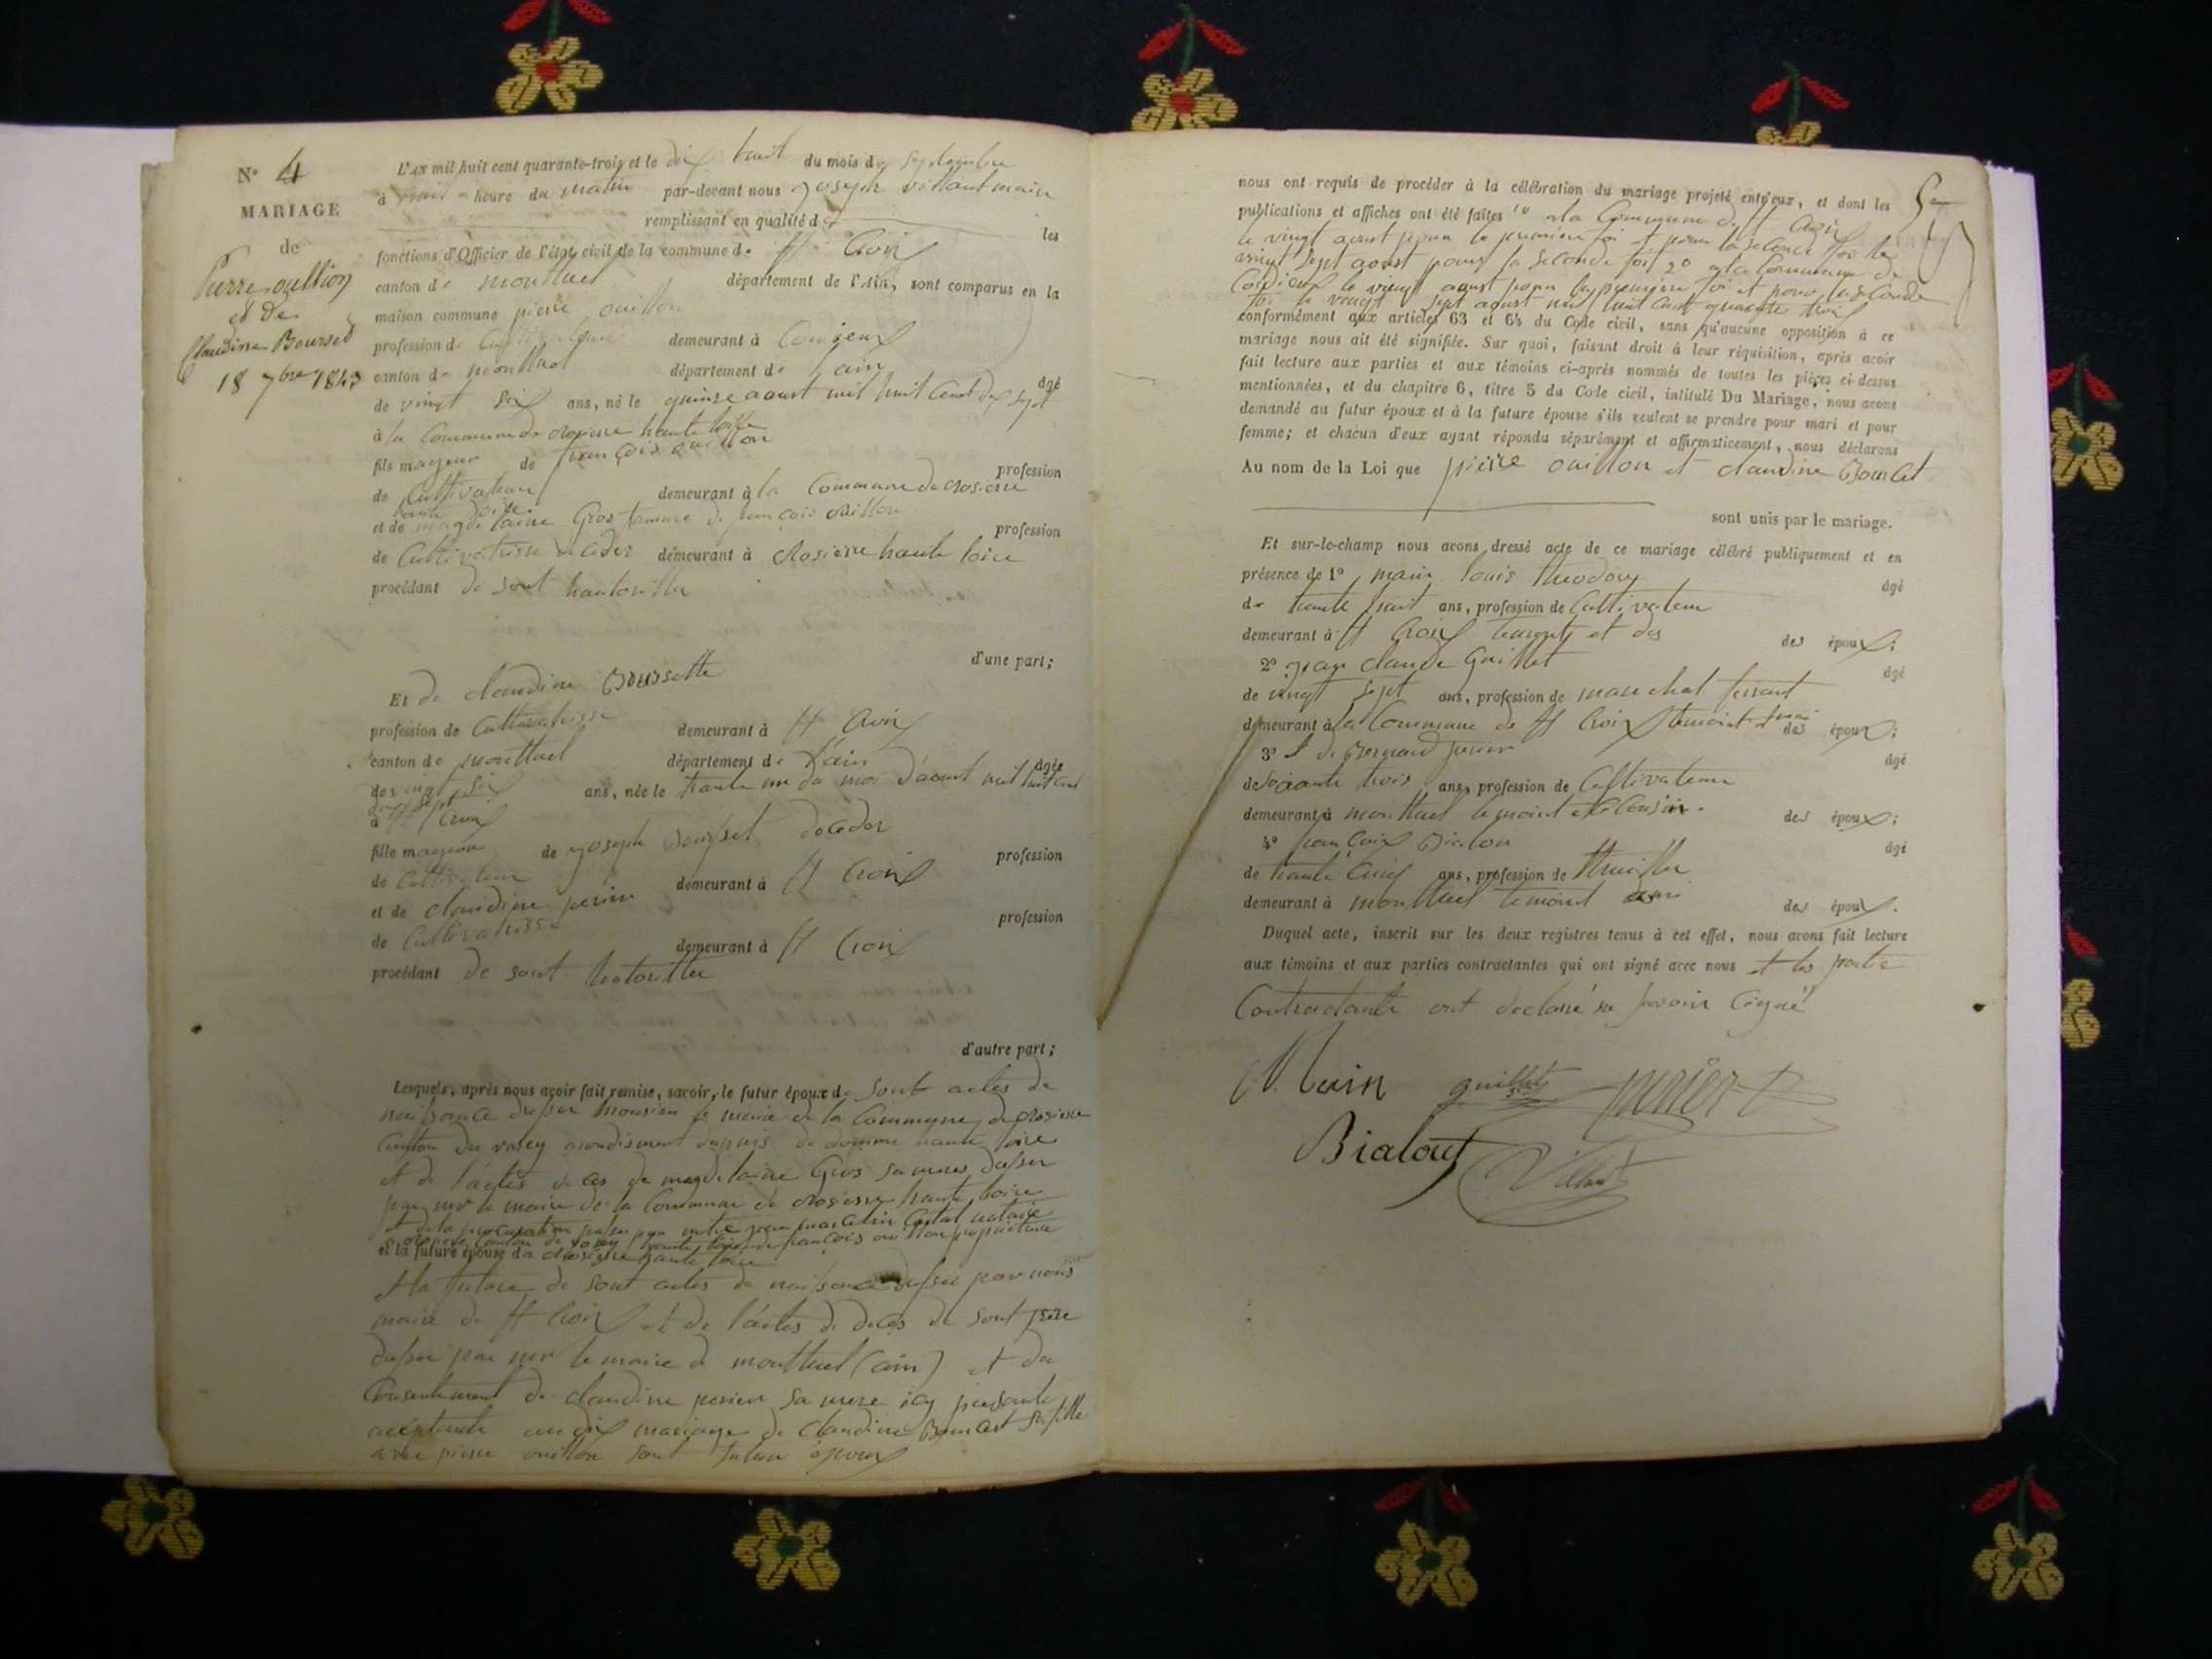 N° 4
MARIAGE
de
Pierre ouillon
et De
Claudine Bourset
18 7bre 1843
L'AN mil huit cent quarante-trois et le dix huit du mois de septembre
à huit heure du matin par-devant nous joseph villant maire
remplissant en qualité de les
fonctions d'Officier de l'état civil de la commune de St Croix
canton de montluel département de l'Ain, sont comparus en la
maison commune pierre ouillon
profession de Cultivateur demeurant à Cordieux
canton de montluel département de lain âgé
de vingt six ans, né le quinze aoust mil huit Cent dix sept
à la Commune de rosierre haute loire
fils mageur de françois ouillon
profession
de Cultivateur demeurant à la Commune de rosierre
haute loire
et de magdelaine Gros famme de françois ouillon
profession
de Cultivatrisse demeurant à rosierre haute loire
procédant de sont
d'une part;
Et de claudine Boursette
profession de Cultivatrisse demeurant à St Croix
canton de montluel département de l'ain âgée
de vingt six ans, née le trante un du moi d'aoust mil huit Cent
dix sept
à St Croix
fille mageure de joseph Bourset
profession
de Cultivateur demeurant à St Croix
et de claudine perier
profession
de Cultivatrisse demeurant à St Croix
procédant de sont
d'autre part;
Lesquels, après nous avoir fait remise, savoir, le futur époux de sont actes de
naissance par monsieur le maire de la Commune de rosierre
Canton du vorey haute loire
et de l'actes de magdelaine Gros sa mere
par mr le maire de la Commune de rosierre haute loire
et de la procuration notaire
canton de vorey haute loire de françois ouillon propriétaire
et la future épouse de rosierre haute loire
et la future de sont actes de naissance par nous
maire de St Croix et de l'actes de deces de sont père
par mr le maire de montluel (ain) et du
Consentement de claudine perier sa mere icy presante
aceptante mariage de claudine Bourcet sa fille
avec pierre ouillon sont futur époux
nous ont requis de procéder à la célébration du mariage projeté entr'eux, et dont les
publications et affiches ont été faites 1° a la Commune de St Croix
le vingt aoust pour la première foi et pour la seconde foi le
vingt sept aoust pour la seconde foi 2° a la Commune de
Cordieux le vingt aoust pour la première foi et pour la seconde
foi le vingt sept aoust mil huit Cent quarante trois
conformément aux articles 63 et 64 du Code civil, sans qu'aucune opposition à ce
mariage nous ait été signifiée. Sur quoi, faisant droit à leur réquisition, après avoir
fait lecture aux parties et aux témoins ci-après nommés de toutes les pièces ci-dessus
mentionnées, et du chapitre 6, titre 5 du Code civil, intitulé Du Mariage, nous avons
demandé au futur époux et à la future épouse s'ils veulent se prendre pour mari et pour
femme; et chacun d'eux ayant répondu séparément et affirmativement, nous déclarons
Au nom de la Loi que pierre ouillon et claudine Bourcet
sont unis par le mariage.
Et sur-le-champ nous avons dressé acte de ce mariage célébré publiquement et en
présence de 1° main louis âgé
de trante huit ans, profession de Cultivateur
demeurant à St Croix des époux;
2° jean claude Guillet âgé
de vingt sept ans, profession de marechal ferrant
demeurant à la Commune de St Croix temoint des époux;
3° Bernard perier âgé
de Soixante trois ans, profession de Cultivateur
demeurant à montluel temoint des époux;
4° françois Bialon âgé
de trante Cinq ans, profession de
demeurant à montluel temoint ami des époux.
Duquel acte, inscrit sur les deux registres tenus à cet effet, nous avons fait lecture
aux témoins et aux parties contractantes qui ont signé avec nous et les partie
Contractante ont declaré ne savoir Cigné
Main guillet perier
Bialout Villant